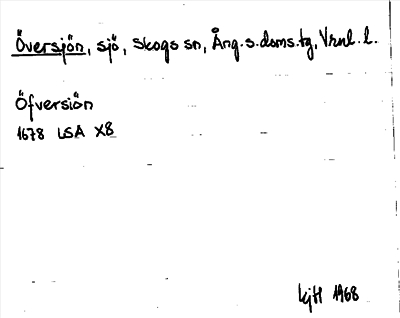 Översjön, sjö, Skogs sn, Ång.s.doms.tg, Vrnl.l.
Öfversiön
1678 LSA X8
kjH 1968